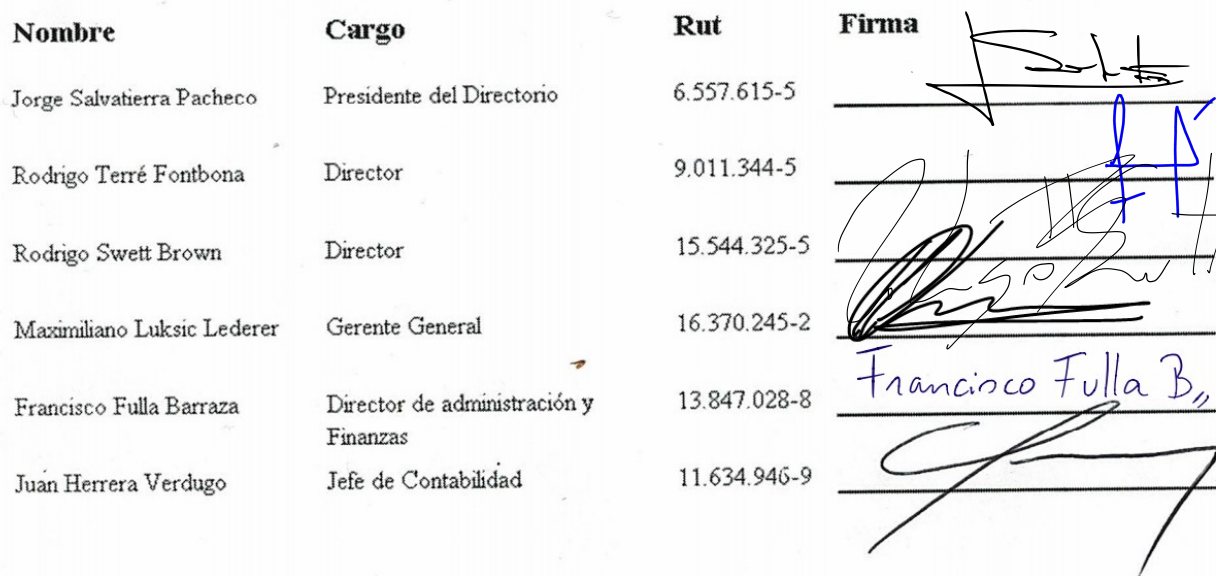 Nombre Cargo Rut Firma
Jorge Salvatierra Pacheco Presidente del Directorio 6.557.615-5
Rodrigo Terré Fontbona Director 9.011.344-5
Rodrigo Swett Brown Director 15.544.325-5
Maximiliano Luksic Lederer Gerente General 16.370.245-2
Francisco Fulla B,,
Francisco Fulla Barraza Director de administración y 13.847.028-8
Finanzas
Juan Herrera Verdugo Jefe de Contabilidad 11.634.946-9